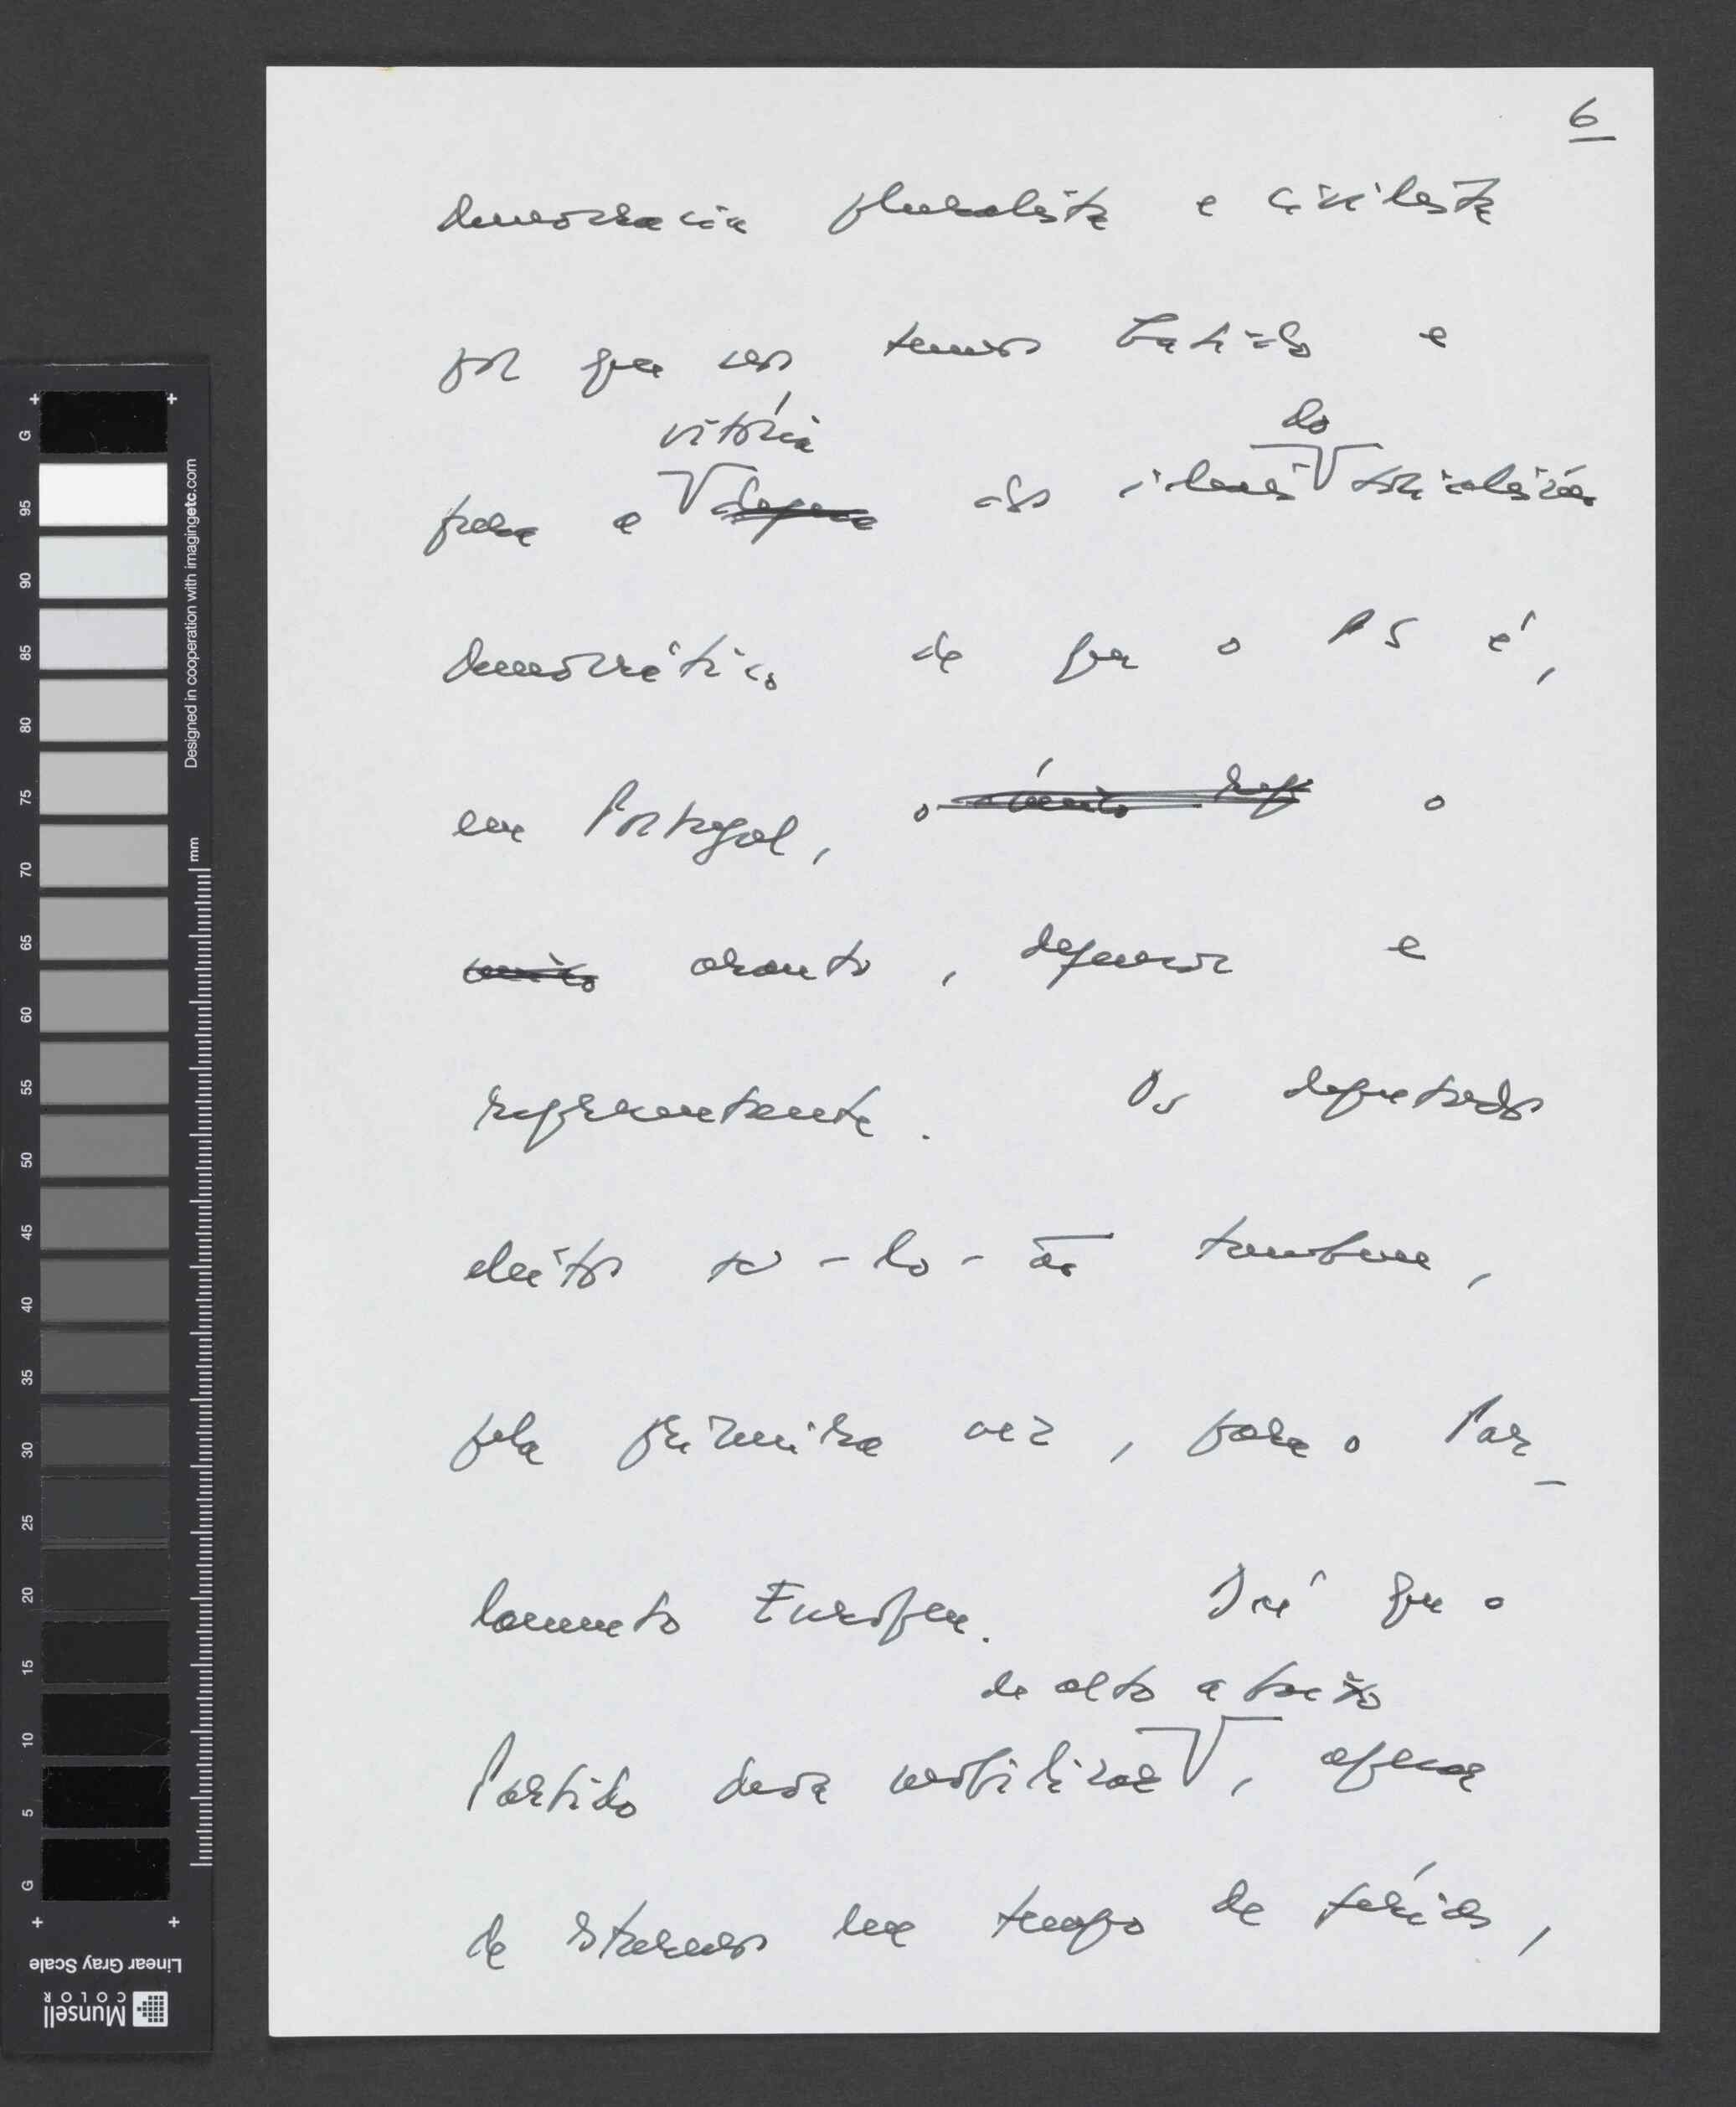 6
democracia pluralista e civilista
por que nos temos batido e
vitória do
para a defesa dos ideais socialismo
democrático de que o PS é,
em Portugal, o único rep o
único arauto, defensor e
representante. Os deputados
eleitos sê-lo-ão também,
pela primeira vez, para o Par-
lamento Europeu. Daí que o
de alto a baixo
Partido deva mobilizar, apesar
de estarmos em tempo de férias,
G
95
90
85
80
75
70
65
60
55
50
45
40
35
30
25
20
15
10
5
G
mm
Designed in cooperation with imagingetc.com
Linear Gray Scale
Munsell
COLOR